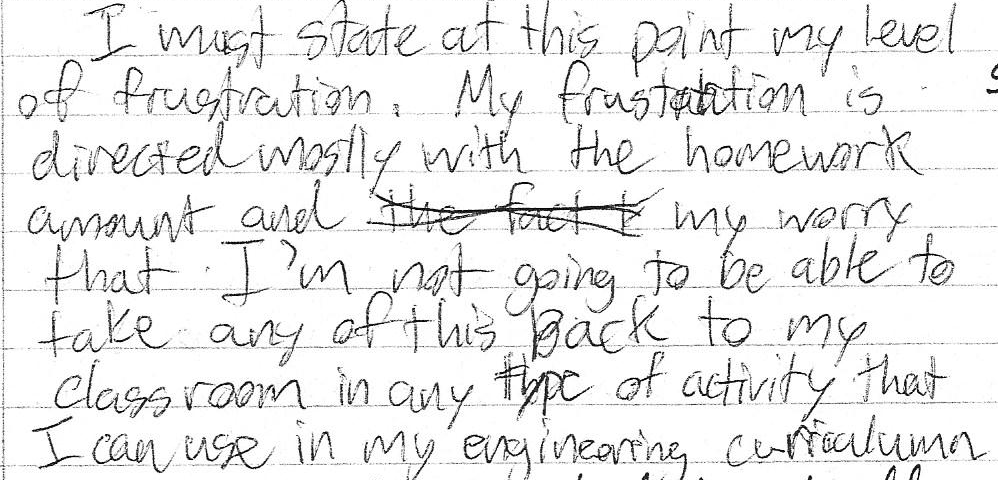 I must state at this point my level
of frustration. My frustration is
directed mostly with the homework
amount and the fact t my worry
that I'm not going to be able to
take any of this back to my
classroom in any type of activity that
I can use in my engineering curriculumn